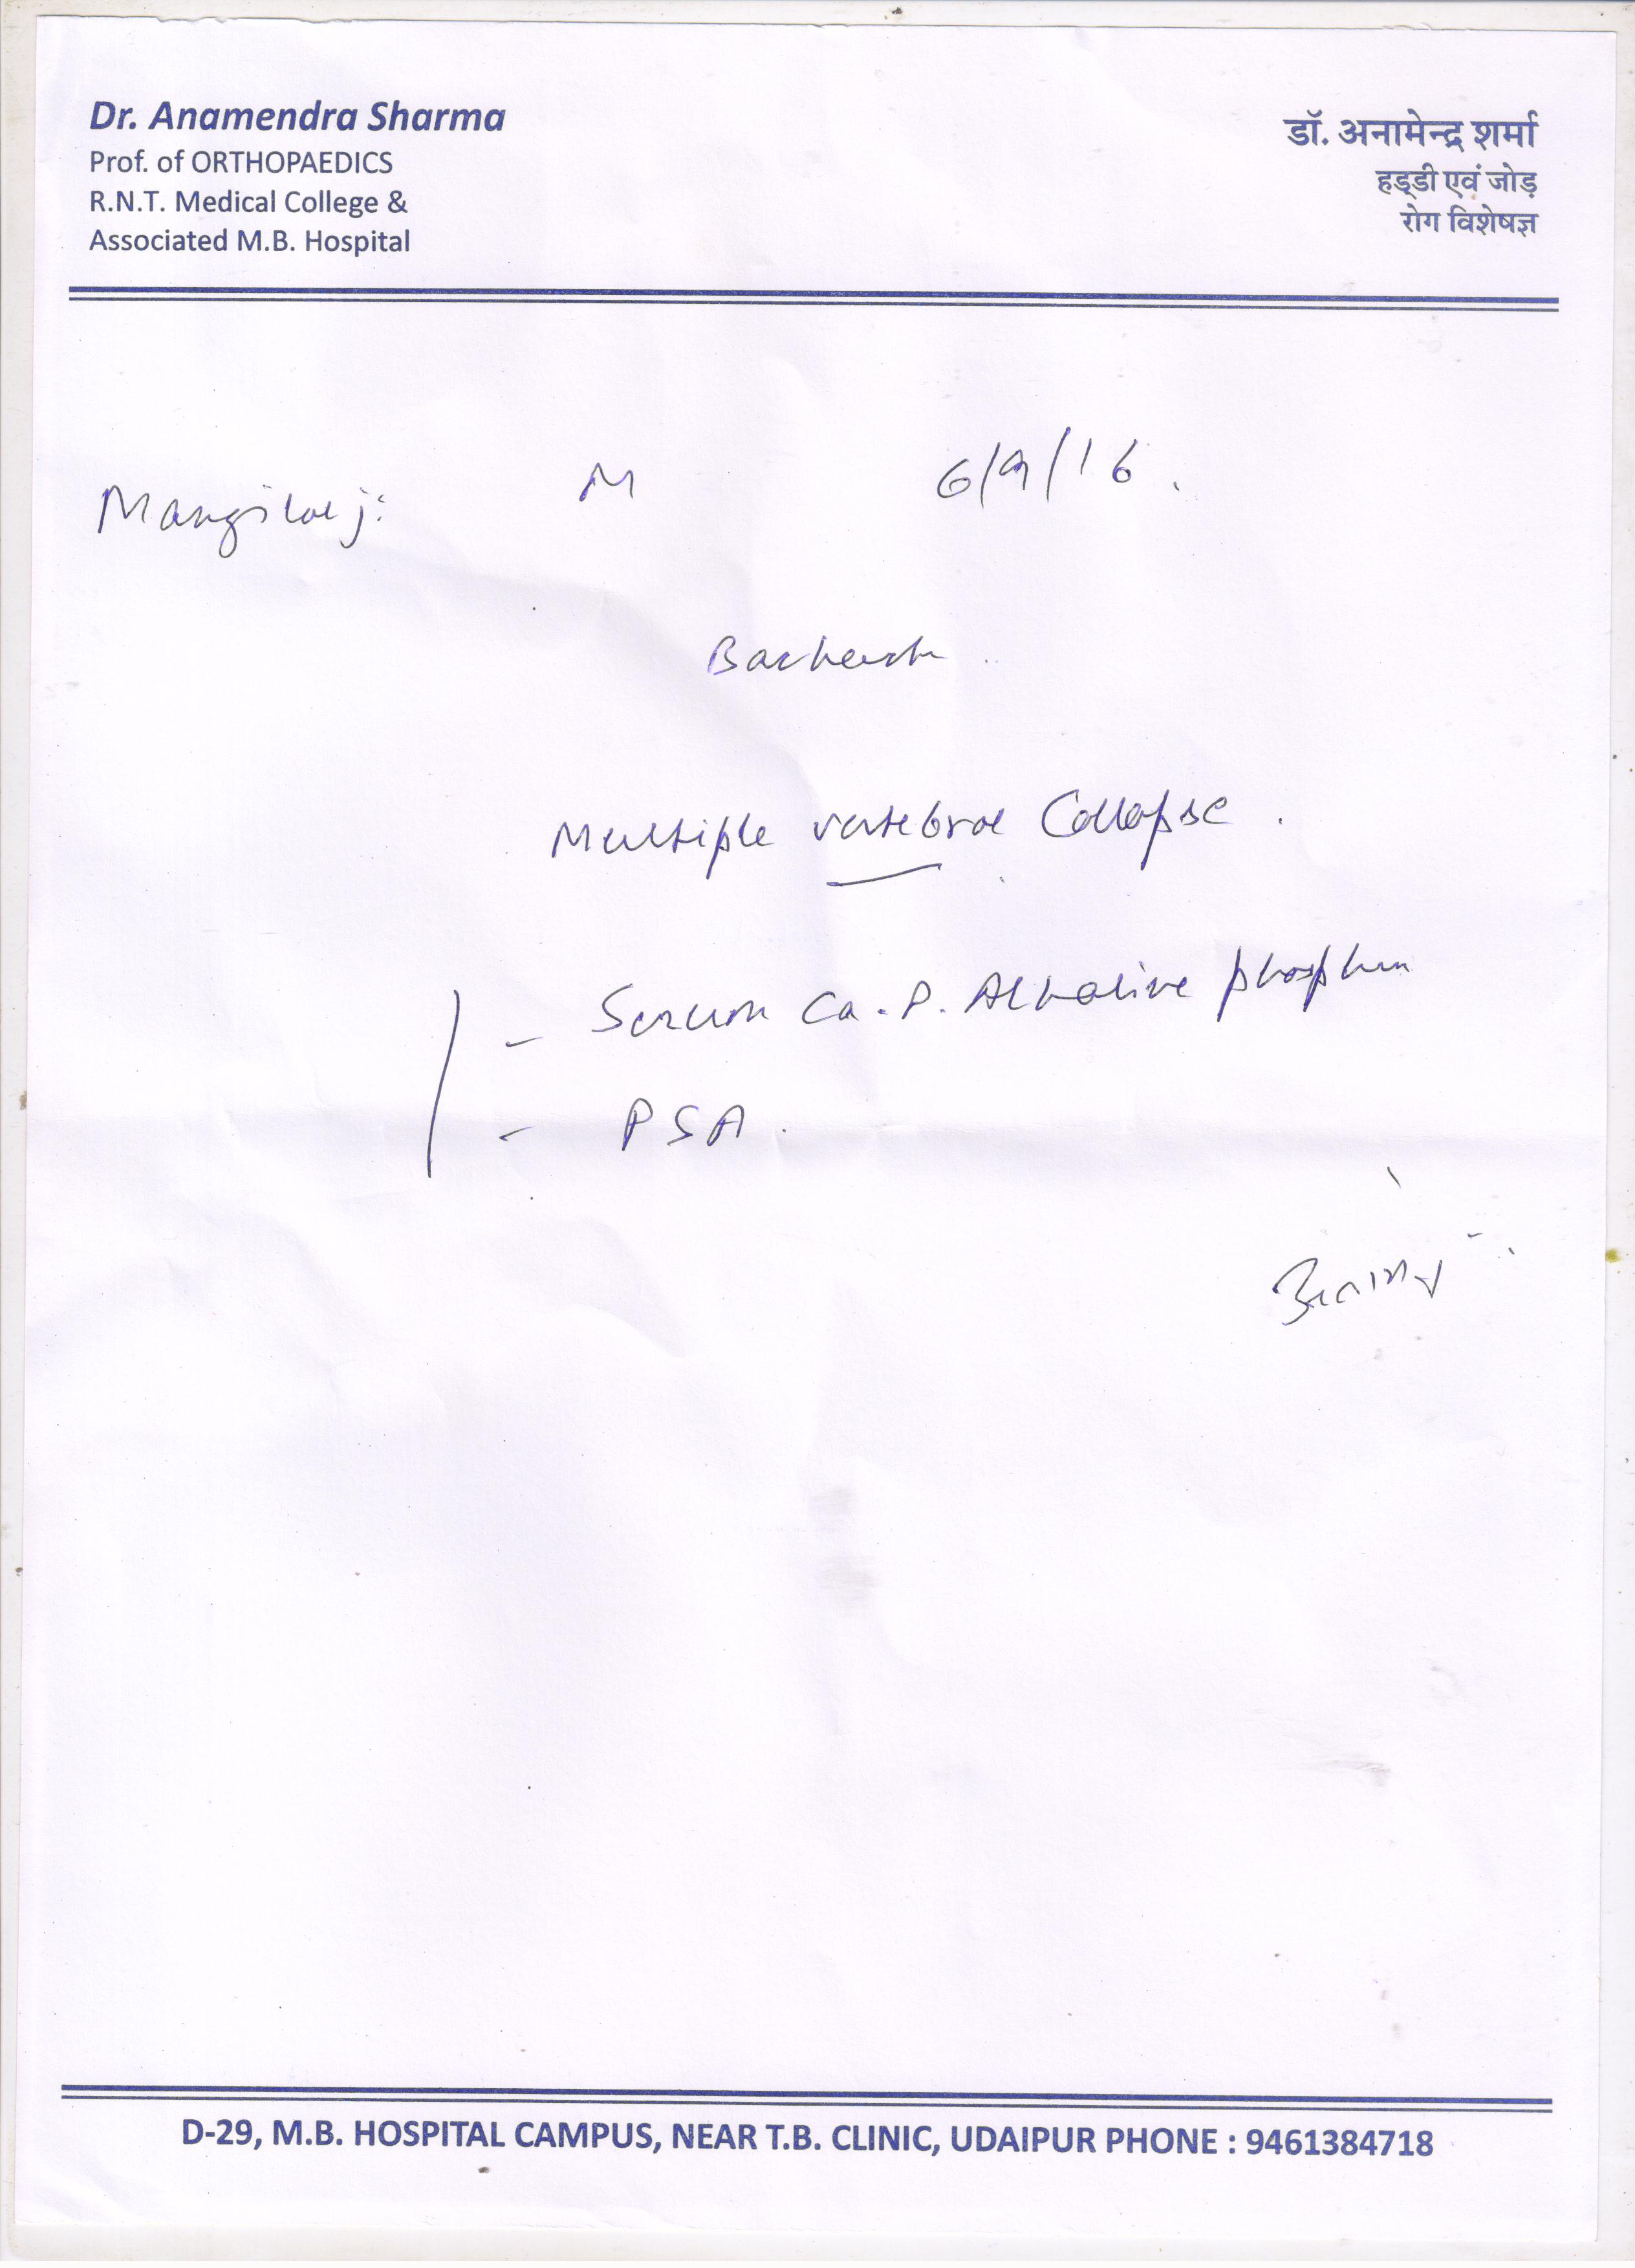 Dr. Anamendra Sharma
Prof. of ORTHOPAEDICS
R.N.T. Medical College &
Associated M.B. Hospital
डॉ. अनामेन्द्र शर्मा
हड्डी एवं जोड़
रोग विशेषज्ञ
Mangilal ji M 6/9/16.
Multiple vertebral Collapse.
- Serum Ca. P. Alkaline
- PSA.
D-29, M.B. HOSPITAL CAMPUS, NEAR T.B. CLINIC, UDAIPUR PHONE : 9461384718